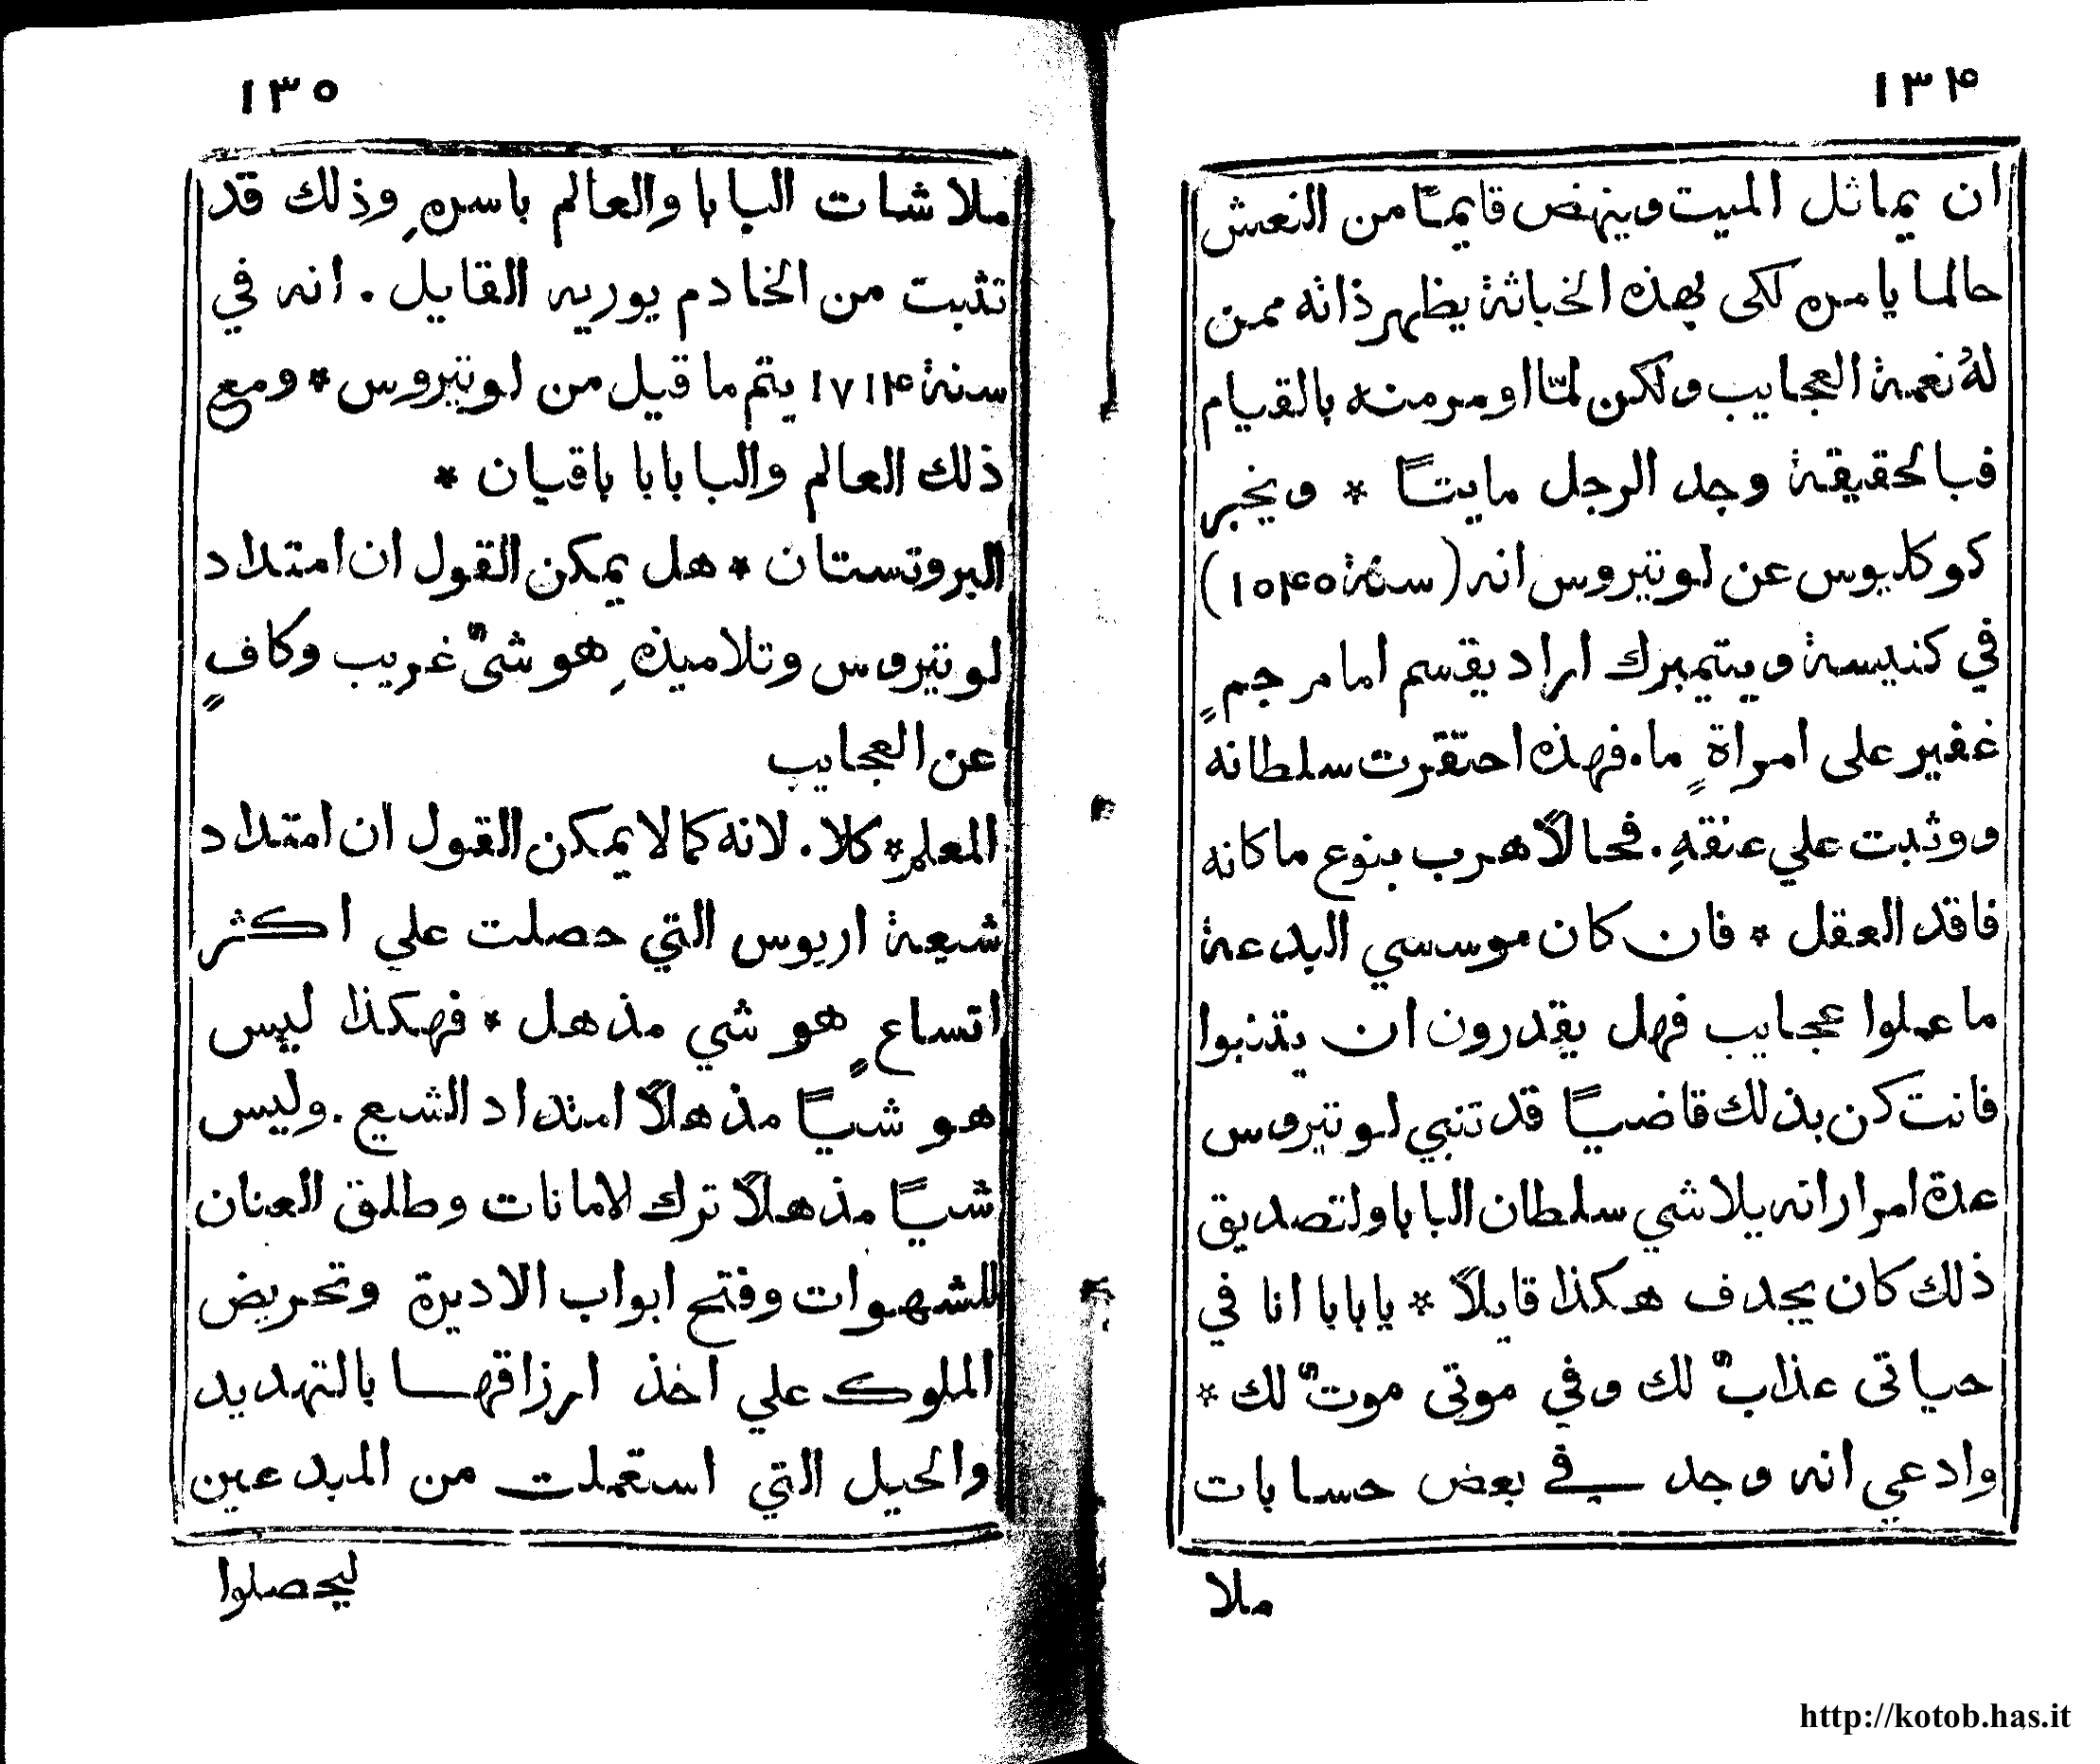 ١٣۴
ان يماثل الميت وينهض قايمًا من النعش
حالما يامره لكى بهذه الخباثة يظهر ذاته ممن
لهُ نعمة العجايب ولكن لمّا اومر منه بالقيام
فبالحقيقة وجد الرجل مايتًا * ويخبر
كوكلوس عن لوتيروس انه (سنة ١٥۴٥)
في كنيسة ويتيمبرك اراد يقسم امام جمٍ
غفير على امراةٍ ما. فهذه احتقرت سلطانه
ووثبت علي عنقهِ. فحالاً هرب بنوع ما كانه
فاقد العقل * فان كان موسسي البدعة
ما عملوا عجايب فهل يقدرون ان يتنبوا
فانت كن بذلك قاضيًا قد تنبي لوتيروس
عدة امرار انه يلاشي سلطان البابا ولتصديق
ذلك كان يجدف هكذا قايلاً * يا بابا انا في
حياتى عذابٌ لك وفي موتى موتٌ لك *
وادعي انه وجد في بعض حسابات
ملا
١٣٥
ملاشات البابا والعالم باسرهِ وذلك قد
تثبت من الخادم يوريه القايل. انه في
سنة ١٧١۴ يتم ما قيل من لوتيروس * ومع
ذلك العالم والبابا باقيان *
البروتستان * هل يمكن القول ان امتداد
لوتيروس وتلاميذهِ هو شىٌ غريب وكافٍ
عن العجايب
المعلم * كلا. لانه كما لا يمكن القول ان امتداد
شيعة اريوس التي حصلت علي اكثر
اتساعٍ هو شي مذهل * فهكذا ليس
هو شيًا مذهلاً امتداد الشيع. وليس
شيًا مذهلاً ترك الامانات وطلق العنان
للشهوات وفتح ابواب الاديرة وتحريض
الملوك علي اخذ ارزاقها بالتهديد
والحيل التي استعملت من المبدعين
ليحصلوا
http://kotob.has.it